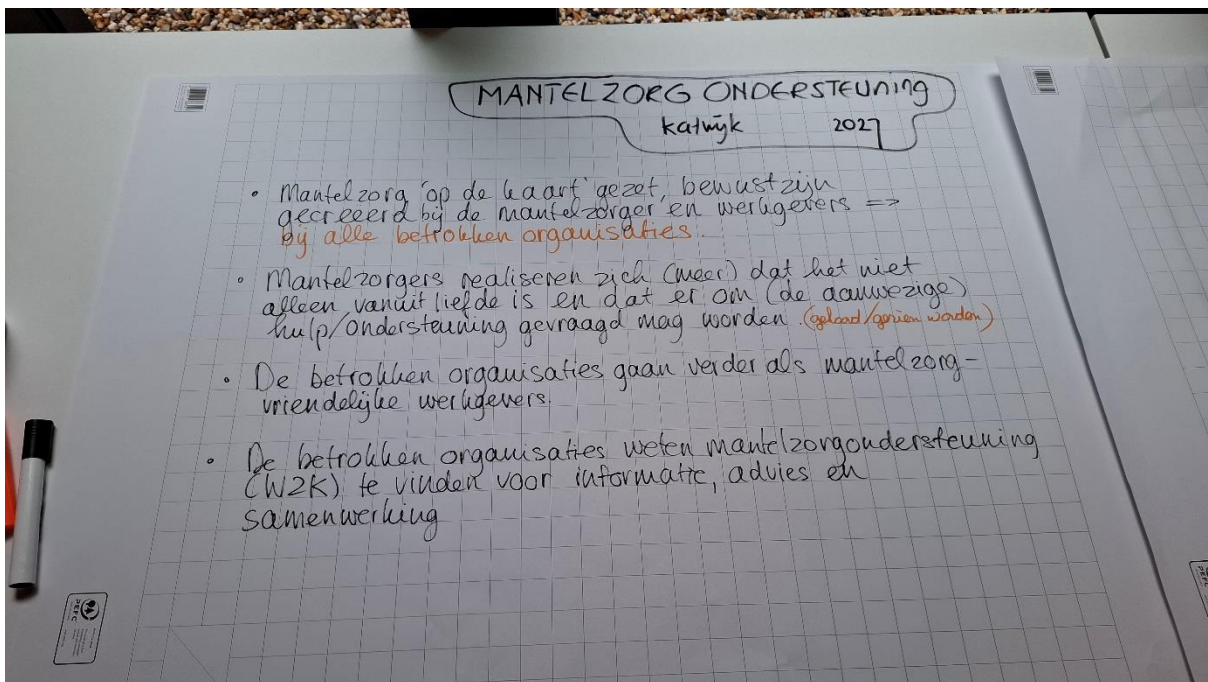 MANTELZORG ONDERSTEUNING
Katwijk 2027
• Mantelzorg 'op de kaart' gezet, bewustzijn
gecreëerd bij de mantelzorger en werkgevers =>
bij alle betrokken organisaties.
• Mantelzorgers realiseren zich (meer) dat het niet
alleen vanuit liefde is en dat er om (de aanwezige)
hulp/ondersteuning gevraagd mag worden. (geloofd/gezien worden)
• De betrokken organisaties gaan verder als mantelzorg-
vriendelijke werkgevers.
• De betrokken organisaties weten mantelzorgondersteuning
(W2K) te vinden voor informatie, advies en
samenwerking
PEFC